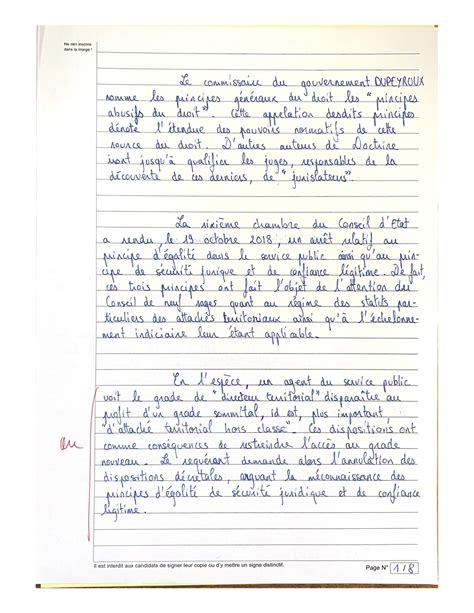 Ne rien inscrire
dans la marge !
Le commissaire du gouvernement DUPEYROUX
nomme les principes généraux du droit les "principes
abusifs du droit". Cette appelation desdits principes
dénote l'étendue des pouvoirs normatifs de cette
source du droit. D'autres auteurs de Doctrine
iront jusqu'à qualifier les juges, responsables de la
découverte de ces derniers, de "jurislateurs".
La sixième chambre du Conseil d'Etat
a rendu, le 19 octobre 2018, un arrêt relatif au
principe d'égalité dans le service public ainsi qu'au prin-
cipe de sécurité jurique et de confiance légitime. De fait,
ces trois principes ont fait l'objet de l'attention du
Conseil de neuf sages quant au régime des statuts par-
ticuliers des attachés territoriaux ainsi qu'à l'échelonne-
ment indiciaire leur étant applicable.
En l'espèce, un agent du service public
voit le grade de "directeur territorial" disparaître au
profit d'un grade sommital, id est, plus important
"d'attaché territorial hors classe". Ces dispositions ont
comme conséquences de restreindre l'accès au grade
nouveau. Le requérant demande alors l'annulation des
dispositions décretales, arguant la méconnaissance des
principes d'égalité de sécurité juridique et de confiance
légitime.
Il est interdit aux candidats de signer leur copie ou d'y mettre un signe distinctif.
Page N° 1/8